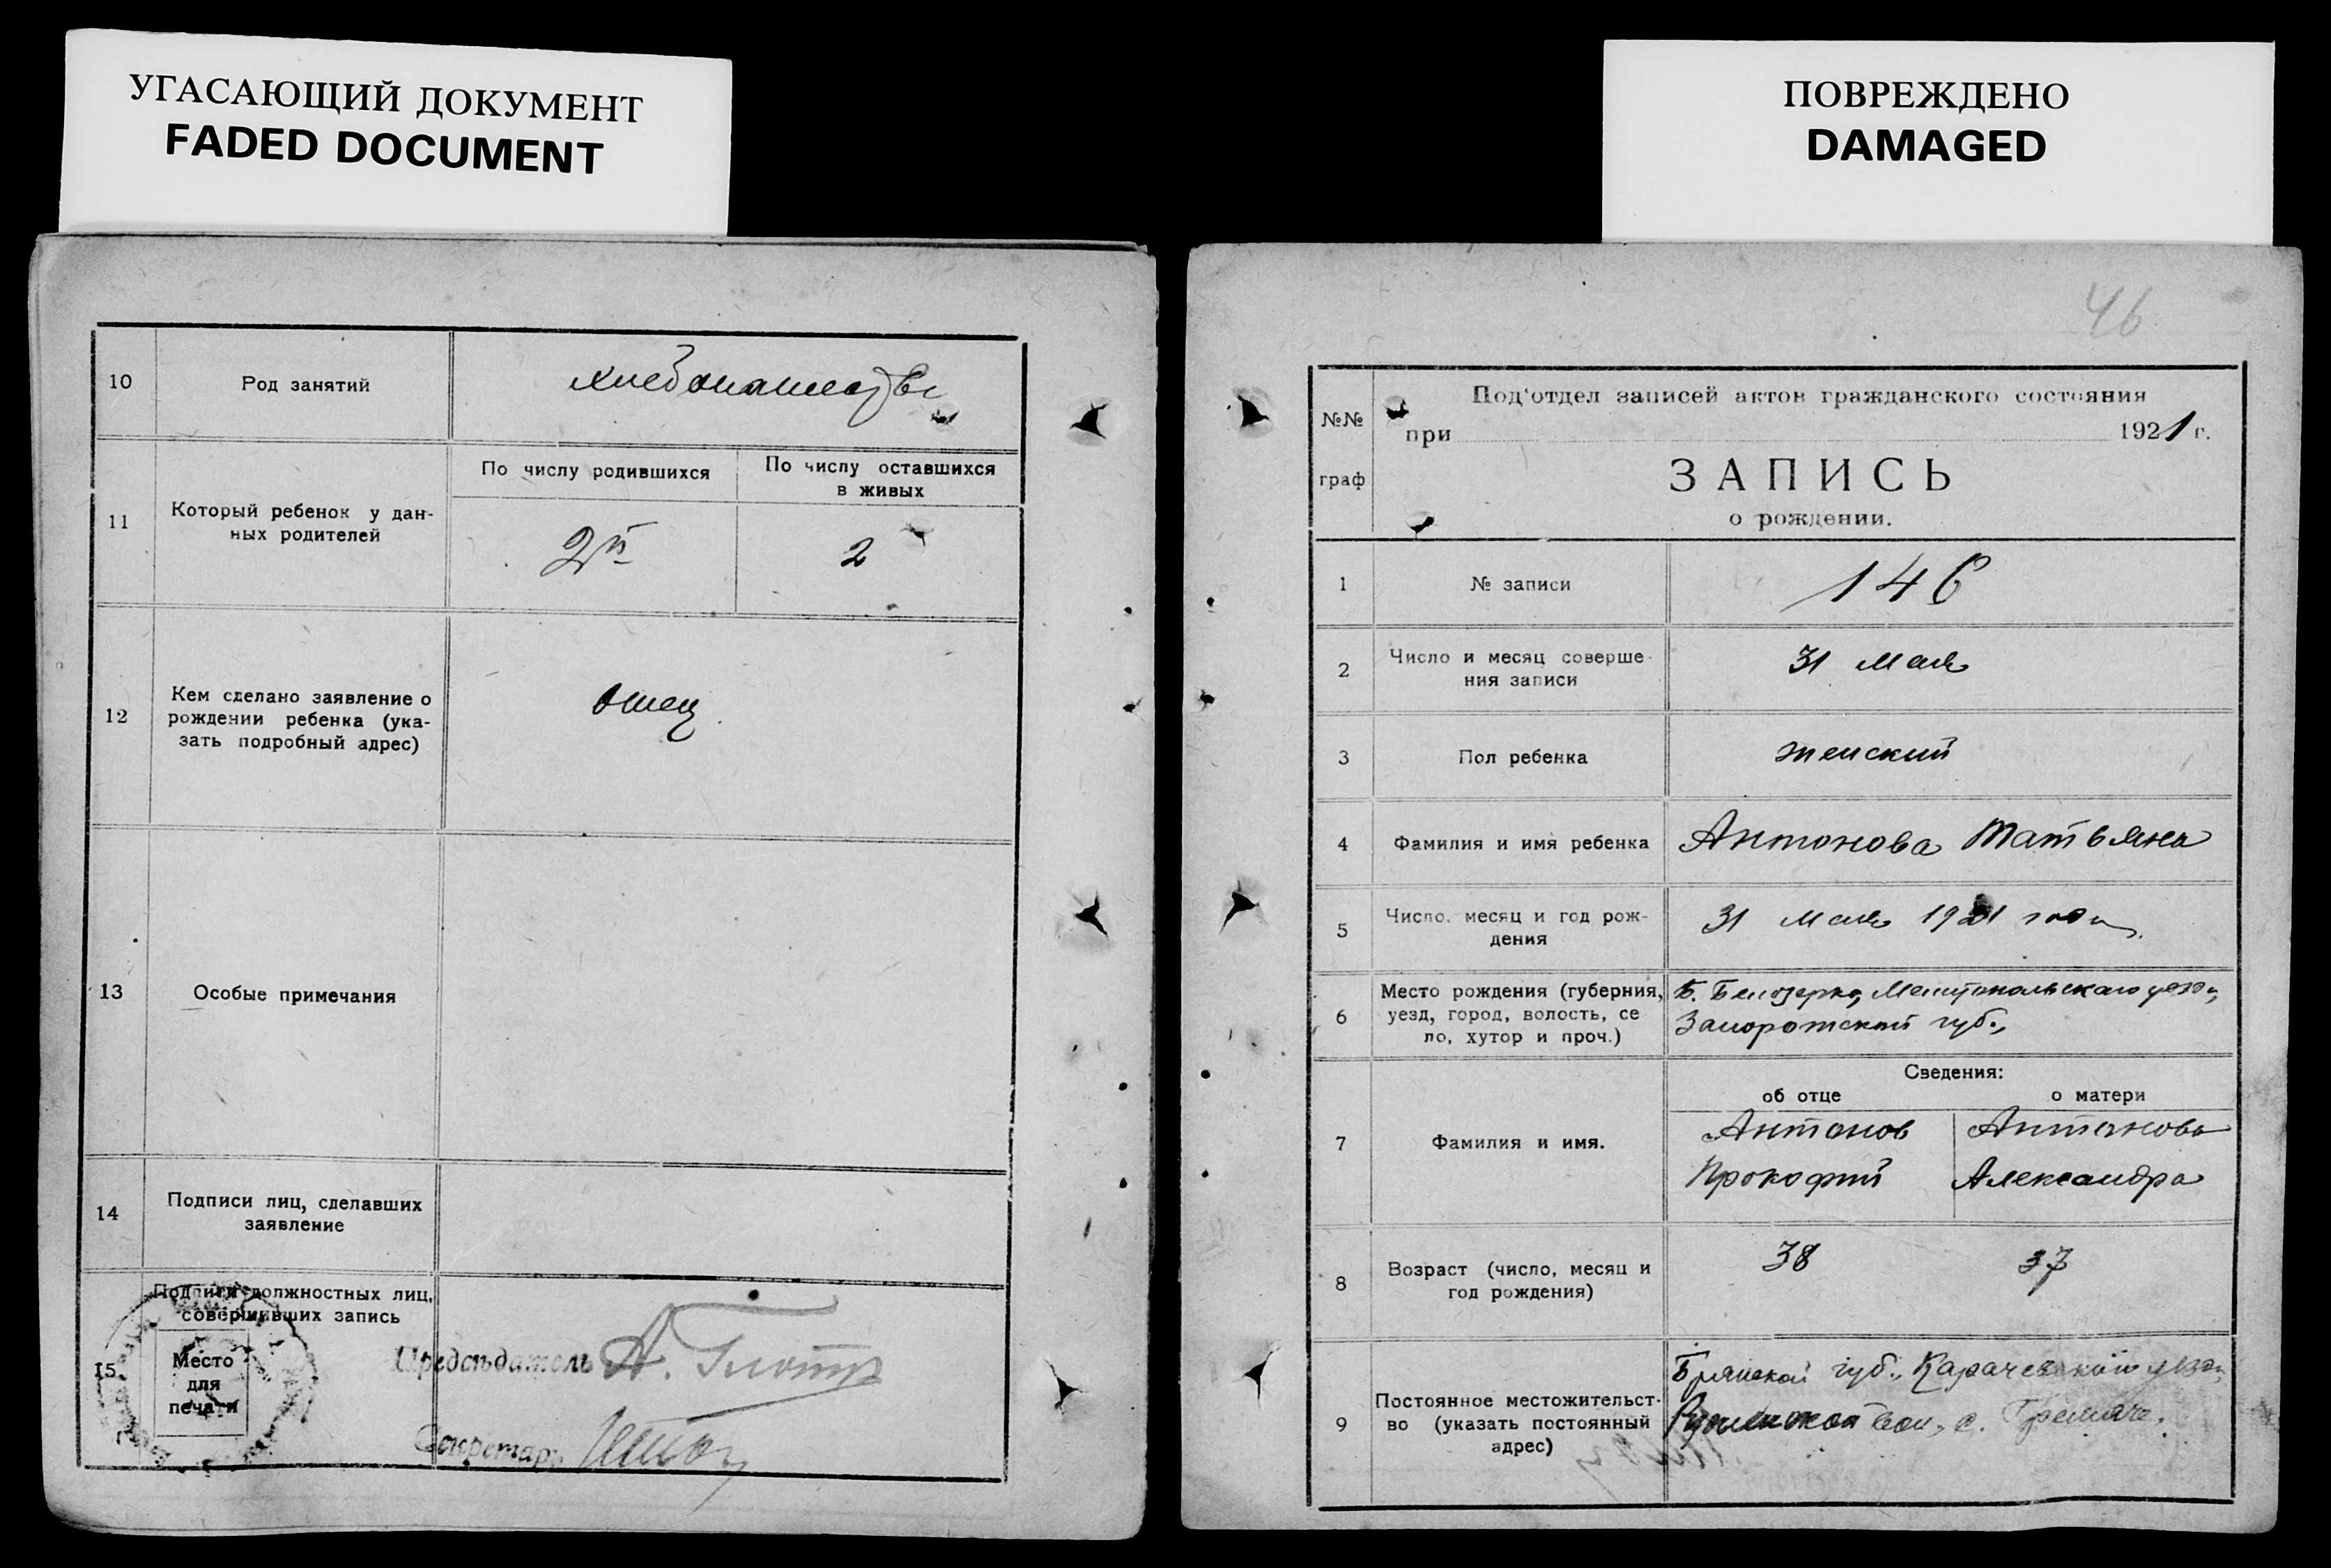 УГАСАЮЩИЙ ДОКУМЕНТ
FADED DOCUMENT
10
Род занятий
хлебопашество
11
Который ребенок у дан-
ных родителей
По числу родившихся
По числу оставшихся
в живых
2й
2
12
Кем сделано заявление о
рождении ребенка (ука-
зать подробный адрес)
Отец
13
Особые примечания
14
Подписи лиц, сделавших
заявление
15.
Подписи должностных лиц,
совершивших запись
Место
для
печати
Председатель А.
Секретарь
ПОВРЕЖДЕНО
DAMAGED
46
№№
граф
Под'отдел записей актов гражданского состояния
при 1921 г.
ЗАПИСЬ
о рождении.
1
№ записи
146
2
Число и месяц соверше-
ния записи
31 мая
3
Пол ребенка
женский
4
Фамилия и имя ребенка
Антонова Татьяна
5
Число, месяц и год рож-
дения
31 мая 1921 года
6
Место рождения (губерния,
уезд, город, волость, се
ло, хутор и проч.)
Б. Белозерка, Мелитопольского уезда,
Запорожской губ.,
Сведения:
об отце
о матери
7
Фамилия и имя.
Антонов
Прокофий
Антонова
Александра
8
Возраст (число, месяц и
год рождения)
38
37
9
Постоянное местожительст-
во (указать постоянный
адрес)
Брянской губ., Карачевского уезда,
вол., с.